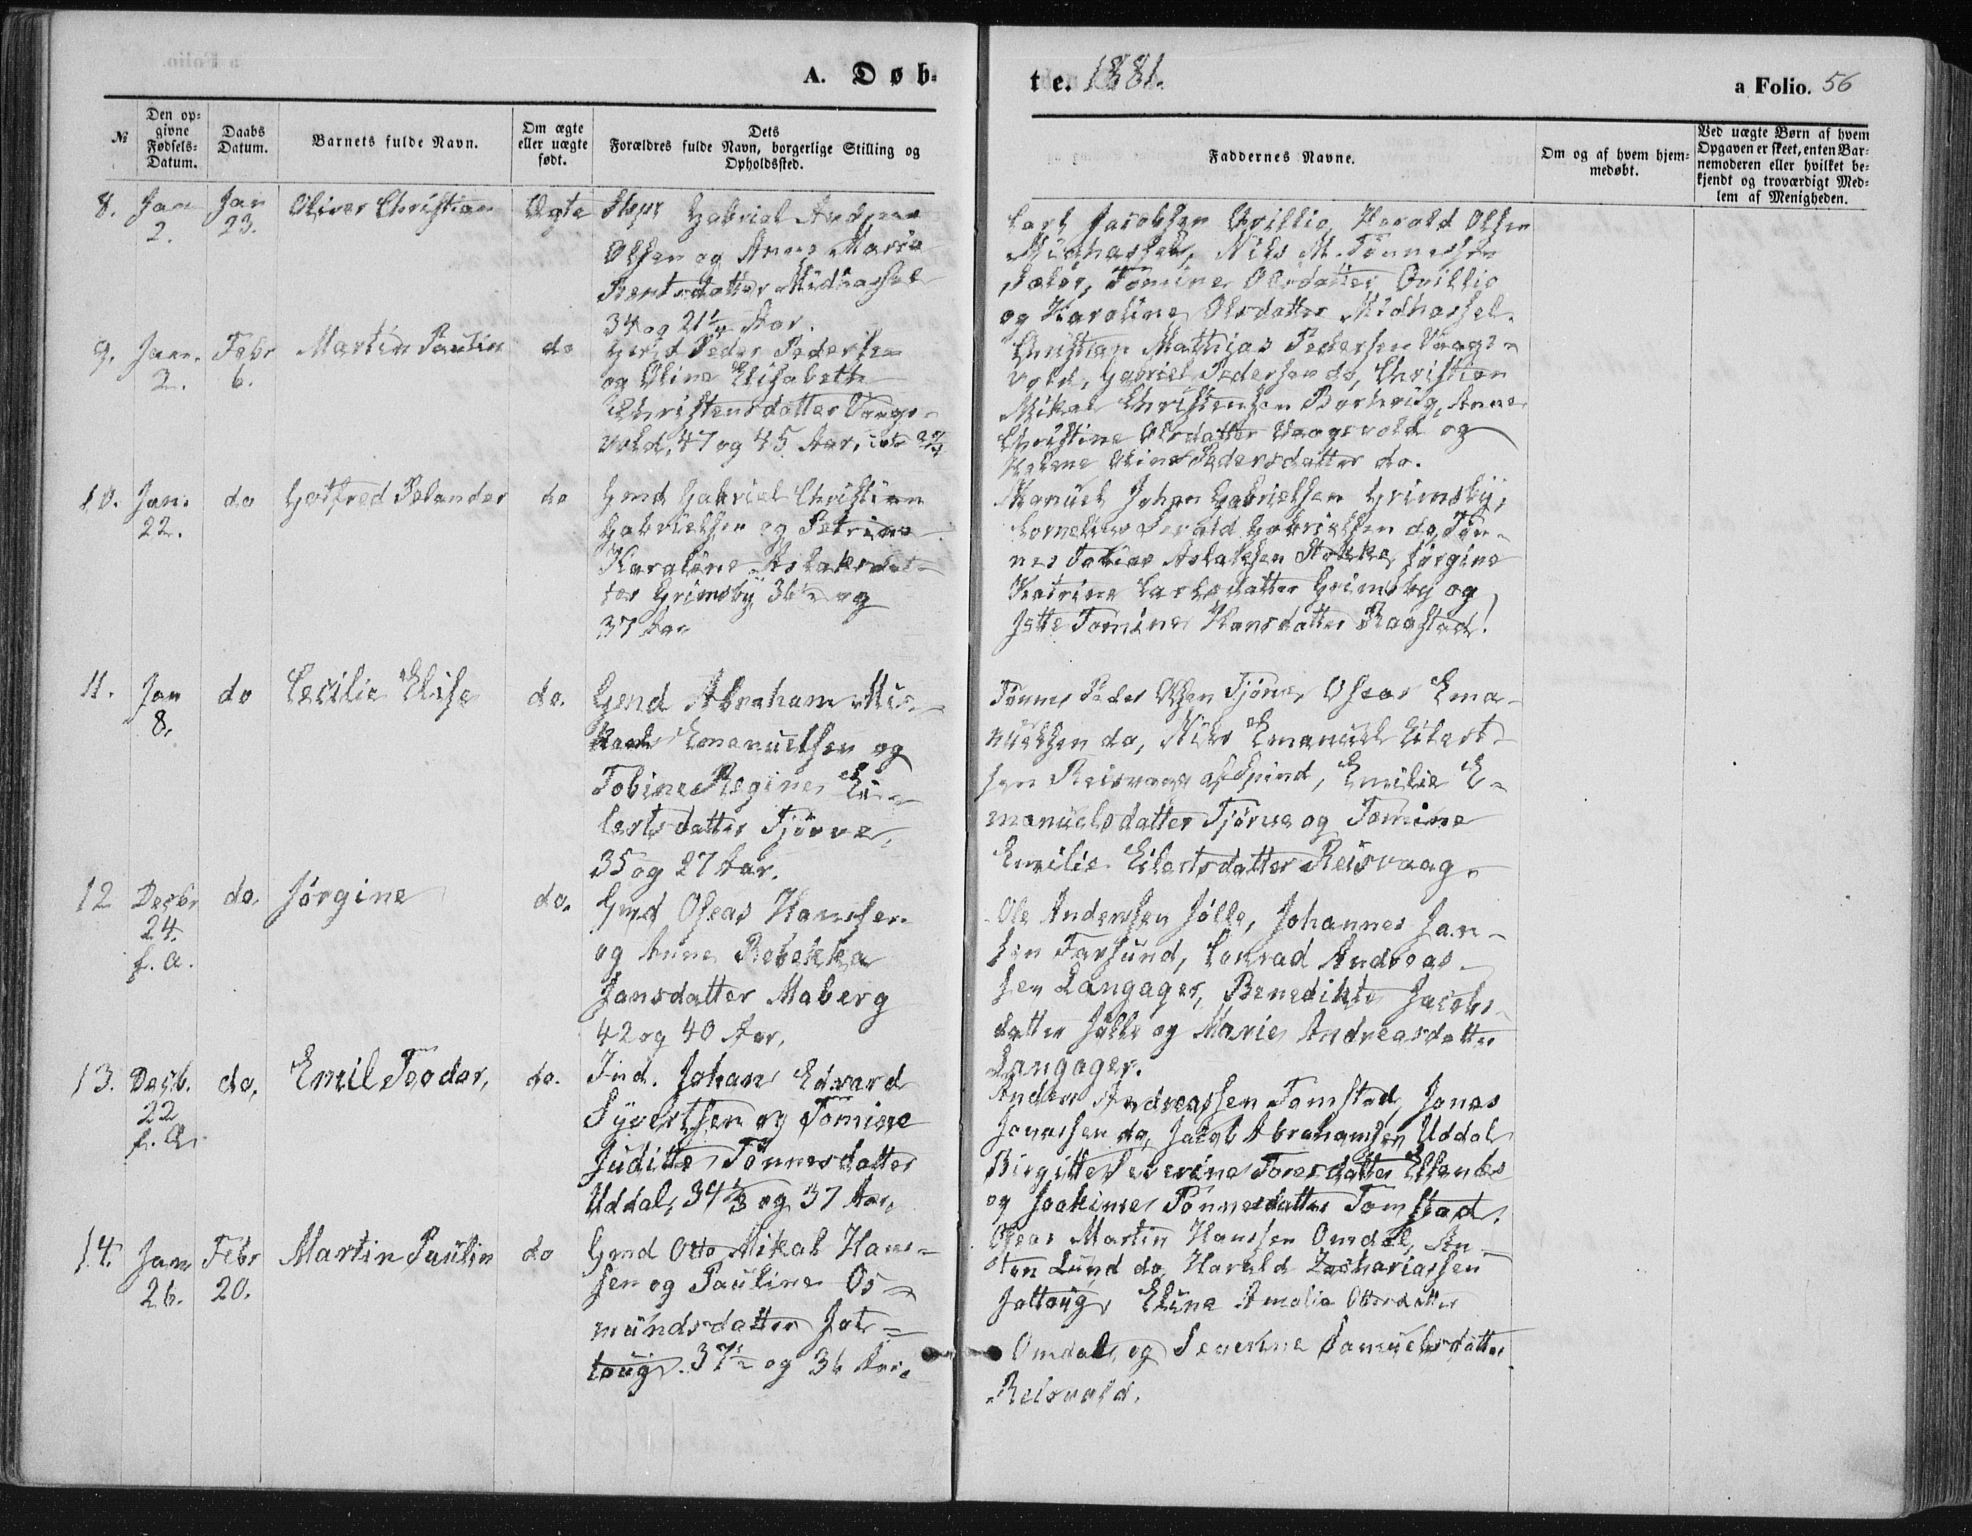 A. Døb-
te. 1881.
a Folio. 56
№
Den op-
givne
Fødsels-
Datum.
Daabs
Datum.
Barnets fulde Navn.
Om ægte
eller uægte
født.
Dets
Forældres fulde Navn, borgerlige Stilling og
Opholdssted.
Faddernes Navne.
Om og af hvem hjem-
medøbt.
Ved uægte Børn af hvem
Opgaven er skeet, enten Bar-
nemoderen eller hvilket be-
kjendt og troværdigt Med-
lem af Menigheden.
8. Jan 2. Jan 23. Oliver Christian Ægte
Gabriel Andreas
Olsen og Anne Marie
Berntsdatter Midhassel
34 og 21 1/4 Aar.
Carl Jacobsen Qvillio, Harald Olsen
Midhassel, Nils M. Tønnessen
Tomine Olsdatter Qvillio
og Karoline Olsdatter Midhassel.
9. Jan. 2. Febr 6. Martin Paulin do
Peder Pedersen
og Oline Elisabeth
Christensdatter Vaags-
vold, 47 og 45 Aar,
Christian Mathias Pedersen Vaags-
vold, Gabriel Pedersen do, Christian
Mikal Christensen Borhaug, Anne
Christine Olsdatter Vaagsvold og
Helene Oline Pedersdatter do.
10. Jan. 22. do Gotfred Pelander do
Gmd Gabriel Christian
Gabrielsen og Petrine
Karoline Aslaksdat-
ter Grimsby 36 1/2 og
37 Aar
Manuel Johan Gabrielsen Grimsby,
Cornelius Gabrielsen do, Tøn-
nes Tobias Aslaksen Stokke, Jørgine
Katrine Carlsdatter Grimsby og
Jette Tomine Hansdatter Raastad.
11. Jan 8. do Cecilie Elise do.
Gmd Abraham
Emanuelsen og
Tobine Regine Ei-
lertsdatter Tjørve,
35 og 27 Aar.
Tønnes Peder Olsen Tjørve, Oseas Ema-
nuelsen do, Nils Emanuel Eilert-
sen Reisvaag af Spind, Emilie E-
manuelsdatter Tjørve og Tomine
Emilie Eilertsdatter Reisvaag.
12 Desbr 24. f. a. do. Jørgine do.
Gmd Oseas Hanssen
og Anne Rebekka
Jansdatter Maberg
42 og 40 Aar.
Ole Andersen Jølle, Johannes Jan-
sen Farsund, Conrad Andreas-
sen Langager, Benedikte Jacobs-
datter Jølle og Marie Andreasdatter
Langager.
13. Desb. 22 f. a. do. Emil Teodor, do.
Ind. Johan Edvard
Syvertsen og Tomine
Juditte Tønnesdatter
Uddal, 34 1/3 og 37 Aar.
Anders Andreassen Tomstad, Jonas
Jonassen do, Jacob Abrahamsen Uddal
Birgitte Severine Toresdatter
og Joakime Tønnesdatter Tomstad.
14. Jan 26. Febr 20. Martin Paulin do
Gmd Otto Mikal Hans-
sen og Pauline Os-
mundsdatter Jat-
toug. 37 1/2 og 36 Aar.
Oseas Martin Hanssen Omdal, An-
ton Lund do, Harald Zachariassen
Jattoug, Eline Amalia Ottosdatter
Omdal, og Severine Samuelsdatter
Reisvold.